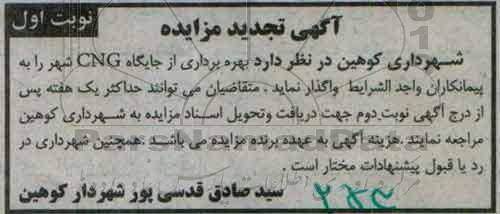 نوبت اول
آگهی تجدید مزایده
شهرداری کوهین در نظر دارد بهره برداری از جایگاه CNG شهر را به
پیمانکاران واجد الشرایط واگذار نماید . متقاضیان می توانند حداکثر یک هفته پس
از درج آگهی نوبت دوم جهت دریافت وتحویل اسناد مزایده به شهرداری کوهین
مراجعه نمایند .هزینه آگهی به عهده برنده مزایده می باشد .همچنین شهرداری در
رد یا قبول پیشنهادات مختار است .
سید صادق قدسی پور شهردار کوهین